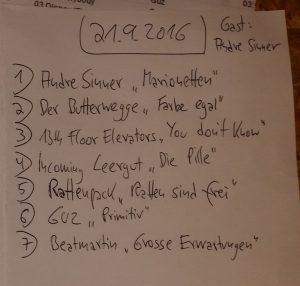 21.9.2016
Gast:
Andre Sinner
1) Andre Sinner „Marionetten"
2) Der Butterwegge „Farbe egal"
3) 13th Floor Elevators „You don't Know"
4) Incoming Leergut „Die Pille"
5) Rattenpack „Ratten sind frei"
6) GUZ „Primitiv"
7) Beatmartin „Grosse Erwartungen"